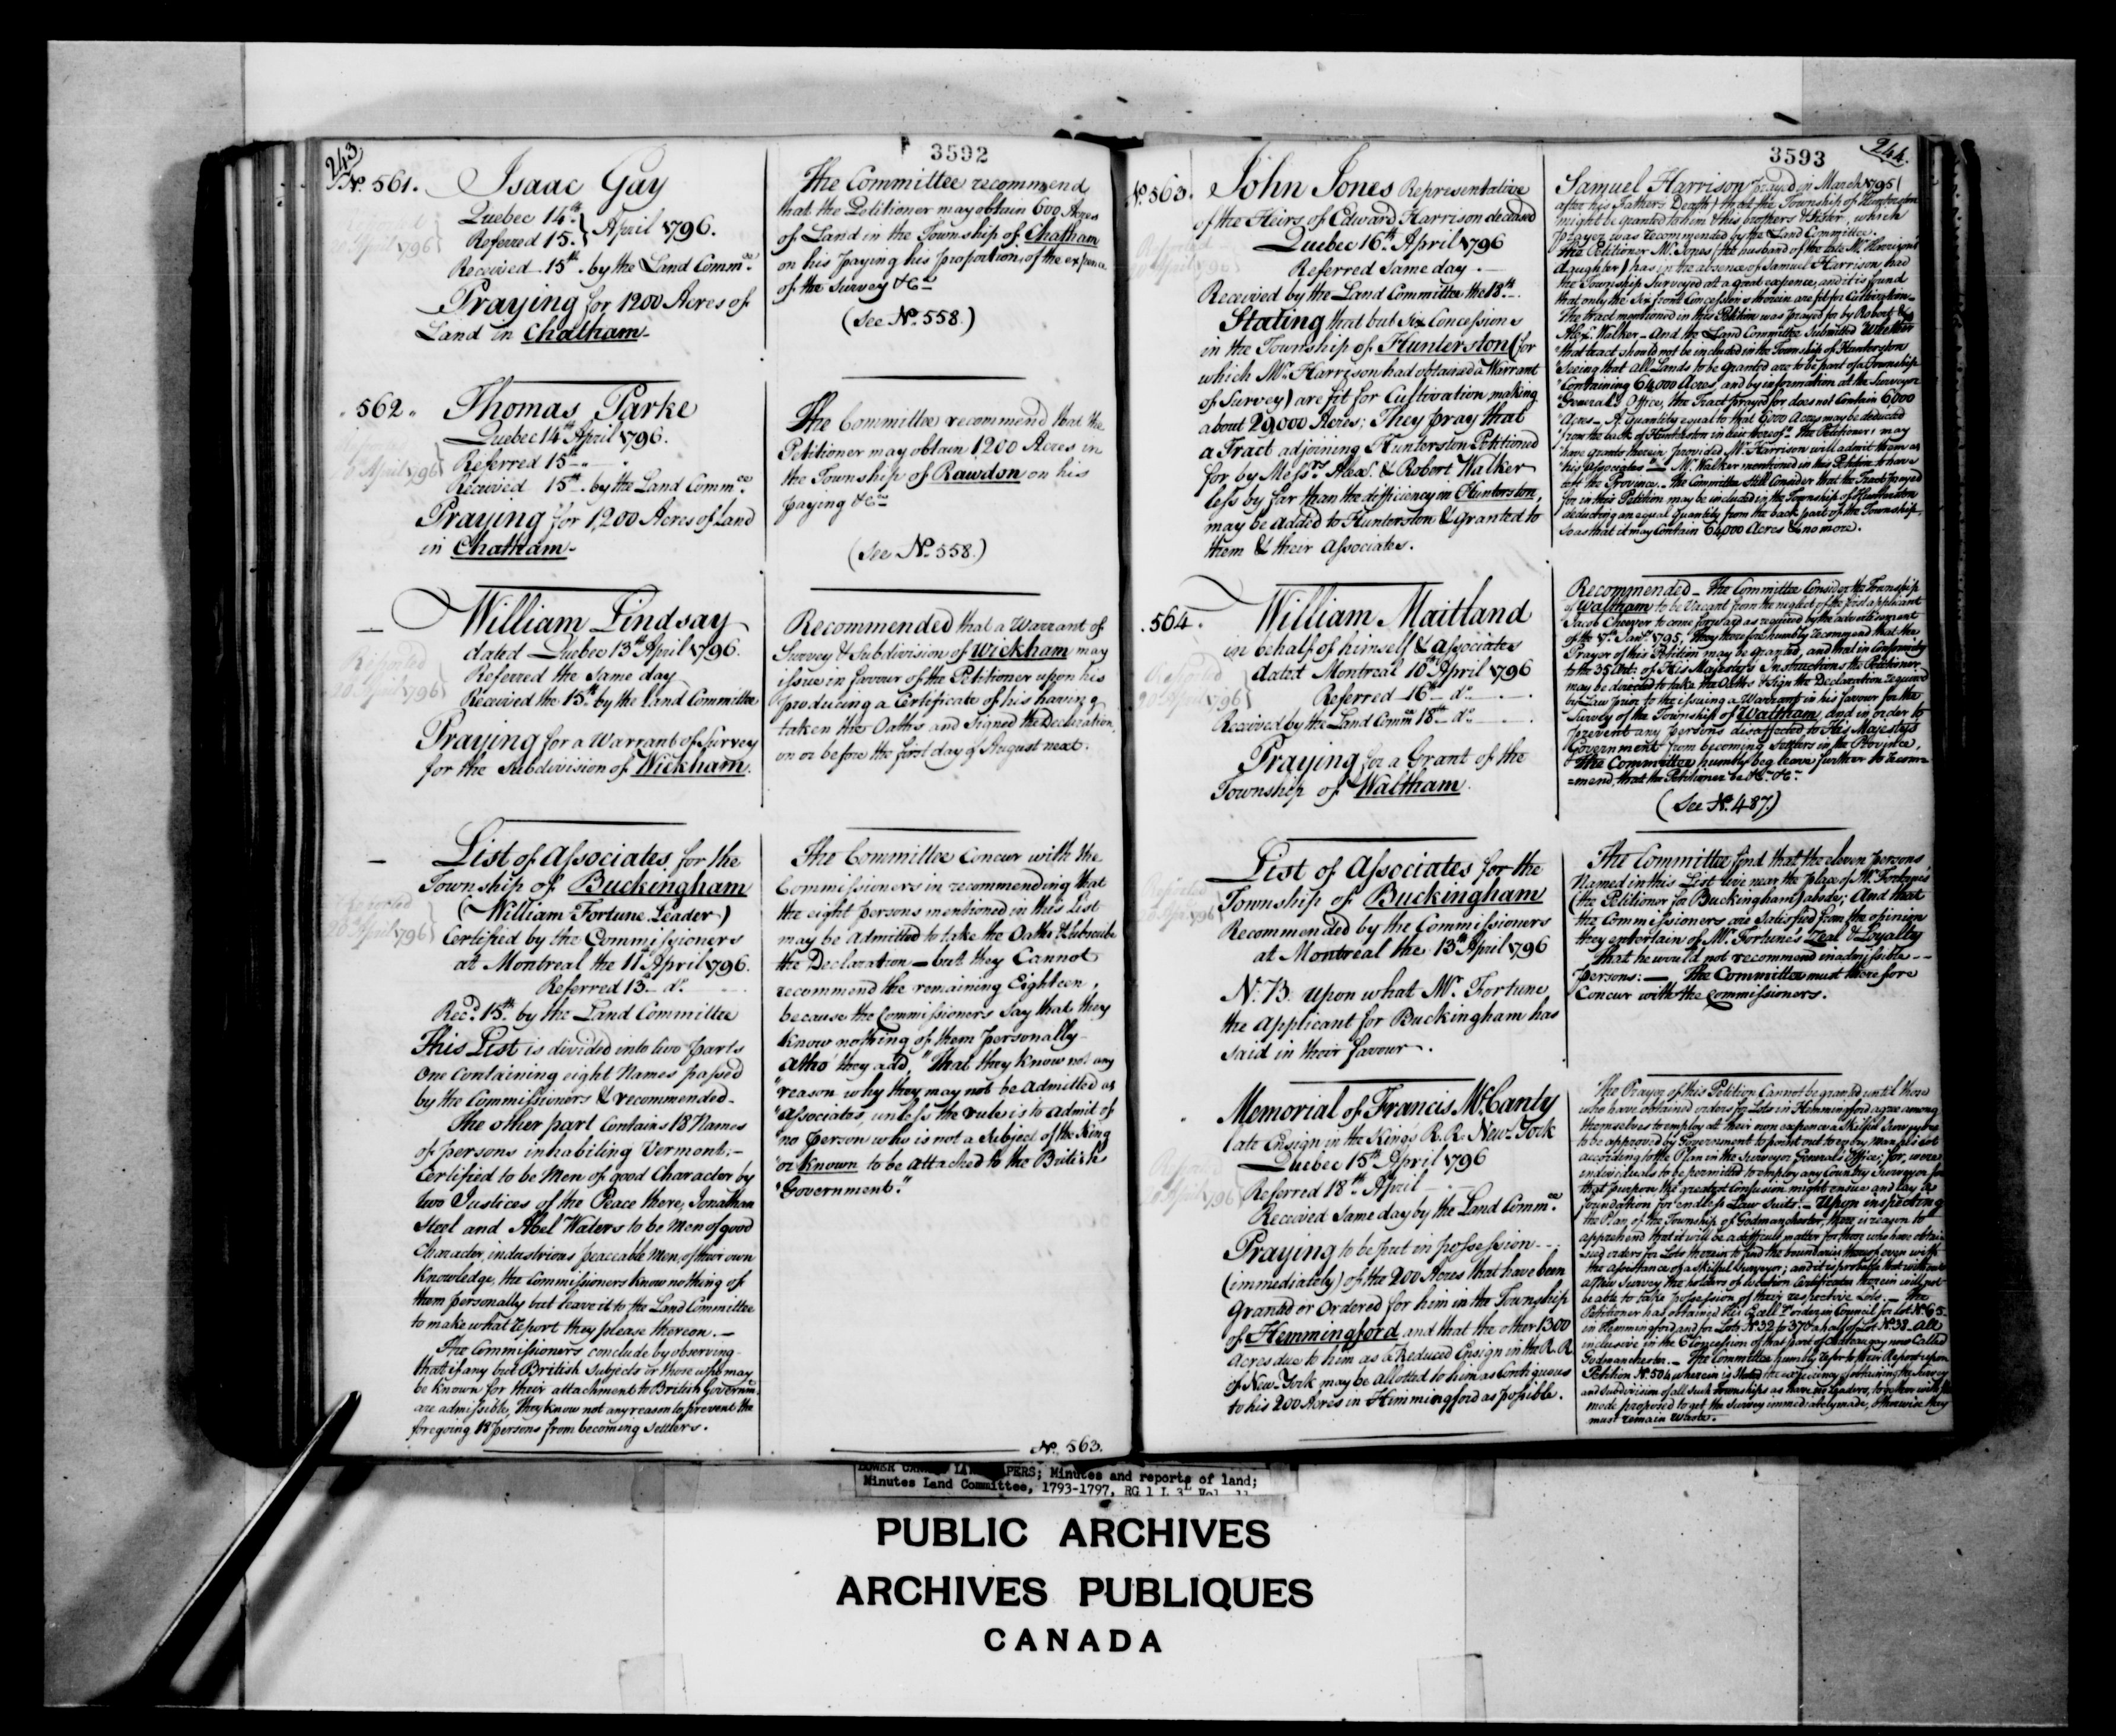 243
3592
No. 561. Isaac Gay
Quebec 14th } April 1796.
Referred 15. }
Received 15th. by the Land Commee
Praying for 1200 Acres of
Land in Chatham
The Committee recommend
that the Petitioner may obtain 600 Acres
of Land in the Township of Chatham
on his paying his proportion of the expence
of the Survey &Ca
(See No. 558.)
20 April 1796
562. Thomas Parke
Quebec 14th April 1796.
Referred 15th
Received 15th. by the Land Commee
Praying for 1,200 Acres of Land
in Chatham
The Committee recommend that the
Petitioner may obtain 1,200 Acres in
the Township of Rawdon on his
paying &Ca
(See No. 558.)
April 1796
William Lindsay
dated Quebec 13th April 1796.
Referred the Same day
Received the 15th by the Land Committee
Praying for a Warrant of Survey
for the Subdivision of Wickham.
Reported
20 April 1796
Recommended that a Warrant of
Survey & Subdivision of Wickham may
issue in favour of the Petitioner upon his
producing a Certificate of his having
taken the Oaths and Signed the Declaration,
on or before the first day of August next.
List of Associates for the
Township of Buckingham
(William Fortune Leader)
Certified by the Commissioners
at Montreal the 11 April 1796.
Referred 13. do.
Recd. 15th. by the Land Committee
This List is divided into two parts
One Containing eight Names passed
by the Commissioners & recommended.
The other part Contains 18 Names
of persons inhabiting Vermont;
Certified to be Men of good Character by
two Justices of the Peace there, Jonathan
Steel and Abel Waters to be Men of good
Character, industrious peaceable Men, of their own
Knowledge, the Commissioners know nothing of
them personally but leave it to the Land Committee
to make what report they please thereon.
The Commissioners conclude by observing
that if any but British Subjects or those who may
be known for their attachment to British Governmt.
are admissible, they know not any reason to prevent the
foregoing 18 persons from becoming Settlers.
Reported
20 April 1796
The Committee Concur with the
Commissioners in recommending that
the eight persons mentioned in this List
may be admitted to take the Oaths & Subscribe
the Declaration — but they Cannot
recommend the remaining Eighteen,
because the Commissioners Say that they
Know nothing of them personally
altho' they add, "That they know not any
"reason why they may not be admitted as
"Associates, unless the rule is to admit of
"no person who is not a Subject of the King
"or known to be attached to the British
"Government."
No. 563.
3593
244.
No. 563. John Jones Representative
of the Heirs of Edward Harrison deceased
Quebec 16th. April 1796
Referred Same day
Received by the Land Committee the 18th.
Stating that but Six Concessions
in the Township of Hunterston (for
which Mr. Harrison had obtained a Warrant
of Survey) are fit for Cultivation making
about 29,000 Acres; They pray that
a Tract adjoining Hunterston Petitioned
for by Messrs. Alexr. & Robert Walker
less by far than the difficiency in Hunterston,
may be added to Hunterston & granted to
them & their associates.
Samuel Harrison prayed in March 1795 (
after his Fathers Death) that the Township of Hunterston
might be granted to him & his brothers & Sister, which
prayer was recommended by the Land Committee.
The Petitioner Mr. Jones (the husband of the late Mr. Harrison's
daughter) has in the absence of Samuel Harrison had
the Township Surveyed at a great expence, and it is found
that only the Six front Concessions therein are fit for Cultivation
The tract mentioned in this Petition was prayed for by Robert &
Alexr. Walker — And the Land Committee Submitted Whether
"that tract should not be included in the Township of Hunterston
"Seeing that all Lands to be granted are to be part of a Township
"Containing 64,000 Acres, and by information at the Surveyor
"General's Office, the Tract prayed for does not Contain 6,000
"Acres — A quantity equal to that 6,000 Acres may be deducted
"from the back of Hunterston in lieu thereof — the Petitioners may
"have grants therein provided Mr. Harrison will admit them as
"his associates" — Mr. Walker mentioned in this Petition to have
left the Province. The Committee still Consider that the Tract prayed
for in this Petition may be included in the Township of Hunterston
deducting an equal quantity from the back part of the Township
So as that it may Contain 64,000 Acres & no more.
564. William Maitland
in behalf of himself & associates
dated Montreal 10th April 1796
Referred 16th do.
Received by the Land Commee 18th do.
Praying for a Grant of the
Township of Waltham.
Reported
20 April 1796
Recommended — The Committee Consider the Township
of Waltham to be Vacant from the neglect of the first applicant
Jacob Cheever to come forward as required by the advertisement
of the 7th. Jany. 1795. They therefore humbly recommend that the
Prayer of this Petition may be granted, and that in Conformity
to the 35 Art: of His Majesty's Instructions the Petitioner
may be directed to take the Oaths & Sign the Declaration required
by Law prior to the issuing a Warrant in his favour for the
Survey of the Township of Waltham, and in order to
prevent any persons disaffected to His Majesty's
Government from becoming Settlers in the Province,
The Committee humbly beg leave further to recom=
=mend, that the Petitioner be &c. &c.
(See No. 487.)
List of Associates for the
Township of Buckingham
Recommended by the Commissioners
at Montreal the 13th April 1796
N. 13. upon what Mr. Fortune
the applicant for Buckingham has
said in their favour.
Reported
20 April 1796
The Committee find that the eleven persons
Named in this List live near the place of Mr. Fortunes
(the Petitioner for Buckingham) abode; And that
the Commissioners are Satisfied from the opinion
they entertain of Mr. Fortune's Zeal & Loyalty
that he would not recommend inadmissible
persons: — The Committee must therefore
Concur with the Commissioners.
Memorial of Francis McCanty
late Ensign in the King's R. R. New-York
Quebec 15th April 1796
Referred 18th. April
Received Same day by the Land Commee
Praying to be put in possession
(immediately) of the 200 Acres that have been
Granted or Ordered for him in the Township
of Hemmingford and that the other 1300
Acres due to him as a Reduced Ensign in the R. R
of New-York may be allotted to him as Contiguous
to his 200 Acres in Himmingford as possible.
The Prayer of this Petition Cannot be granted until those
who have obtained orders for Lots in Hemmingford agree among
themselves to employ at their own expence a Skilful Surveyor
to be approved by Government to point out to every Man his Lot
according to the Plan in the Surveyor General's Office; for, were
individuals to be permitted to employ any Country Surveyor for
that purpose the greatest Confusion might ensue and lay a
foundation for endless Law Suits. — Upon inspecting
the Plan of the Township of Godmanchester, there is reason to
apprehend that it will be a difficult matter for those who have obtain
=ed orders for Lots therein to find the boundaries thereof even with
the assistance of a Skilful Surveyor; and it is probable that without
a New Survey the holders of Location Certificates therein will not
be able to take possession of their respective Lots. — The
Petitioner has obtained His Excelly's order in Council for Lot No. 65
in Hemmingford, and for Lots No. 32 to 37 & a half of Lot No. 38 all
inclusive in the 6 Concession of that part of Chateaugay now Called
Godmanchester. — The Committee humbly refer to their Report upon
Petition No. 504 wherein is Stated the expediency of obtaining the Survey
and Subdivision of all such Townships as have no Leaders, together with the
mode proposed to get the Survey immediately made, otherwise they
must remain Waste.
LOWER CANADA LAND PAPERS; Minutes and reports of land;
Minutes Land Committee, 1793-1797, RG 1 L 3L Vol. 11
PUBLIC ARCHIVES
ARCHIVES PUBLIQUES
CANADA